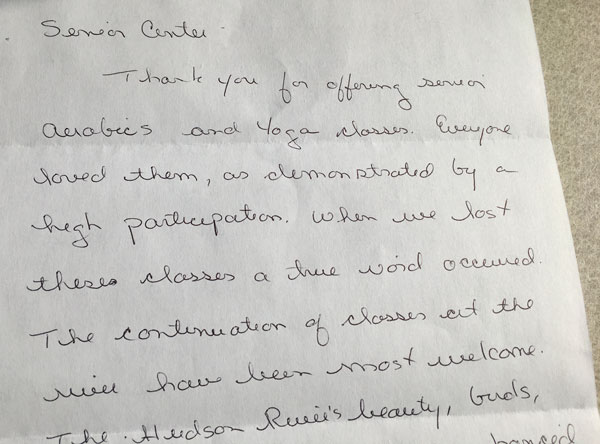 Senior Center
Thank you for offering senior
aerobics and Yoga classes. Everyone
loved them, as demonstrated by a
high participation. When we lost
these classes a true void occurred.
The continuation of classes at the
river have been most welcome.
The Hudson River's beauty, birds,